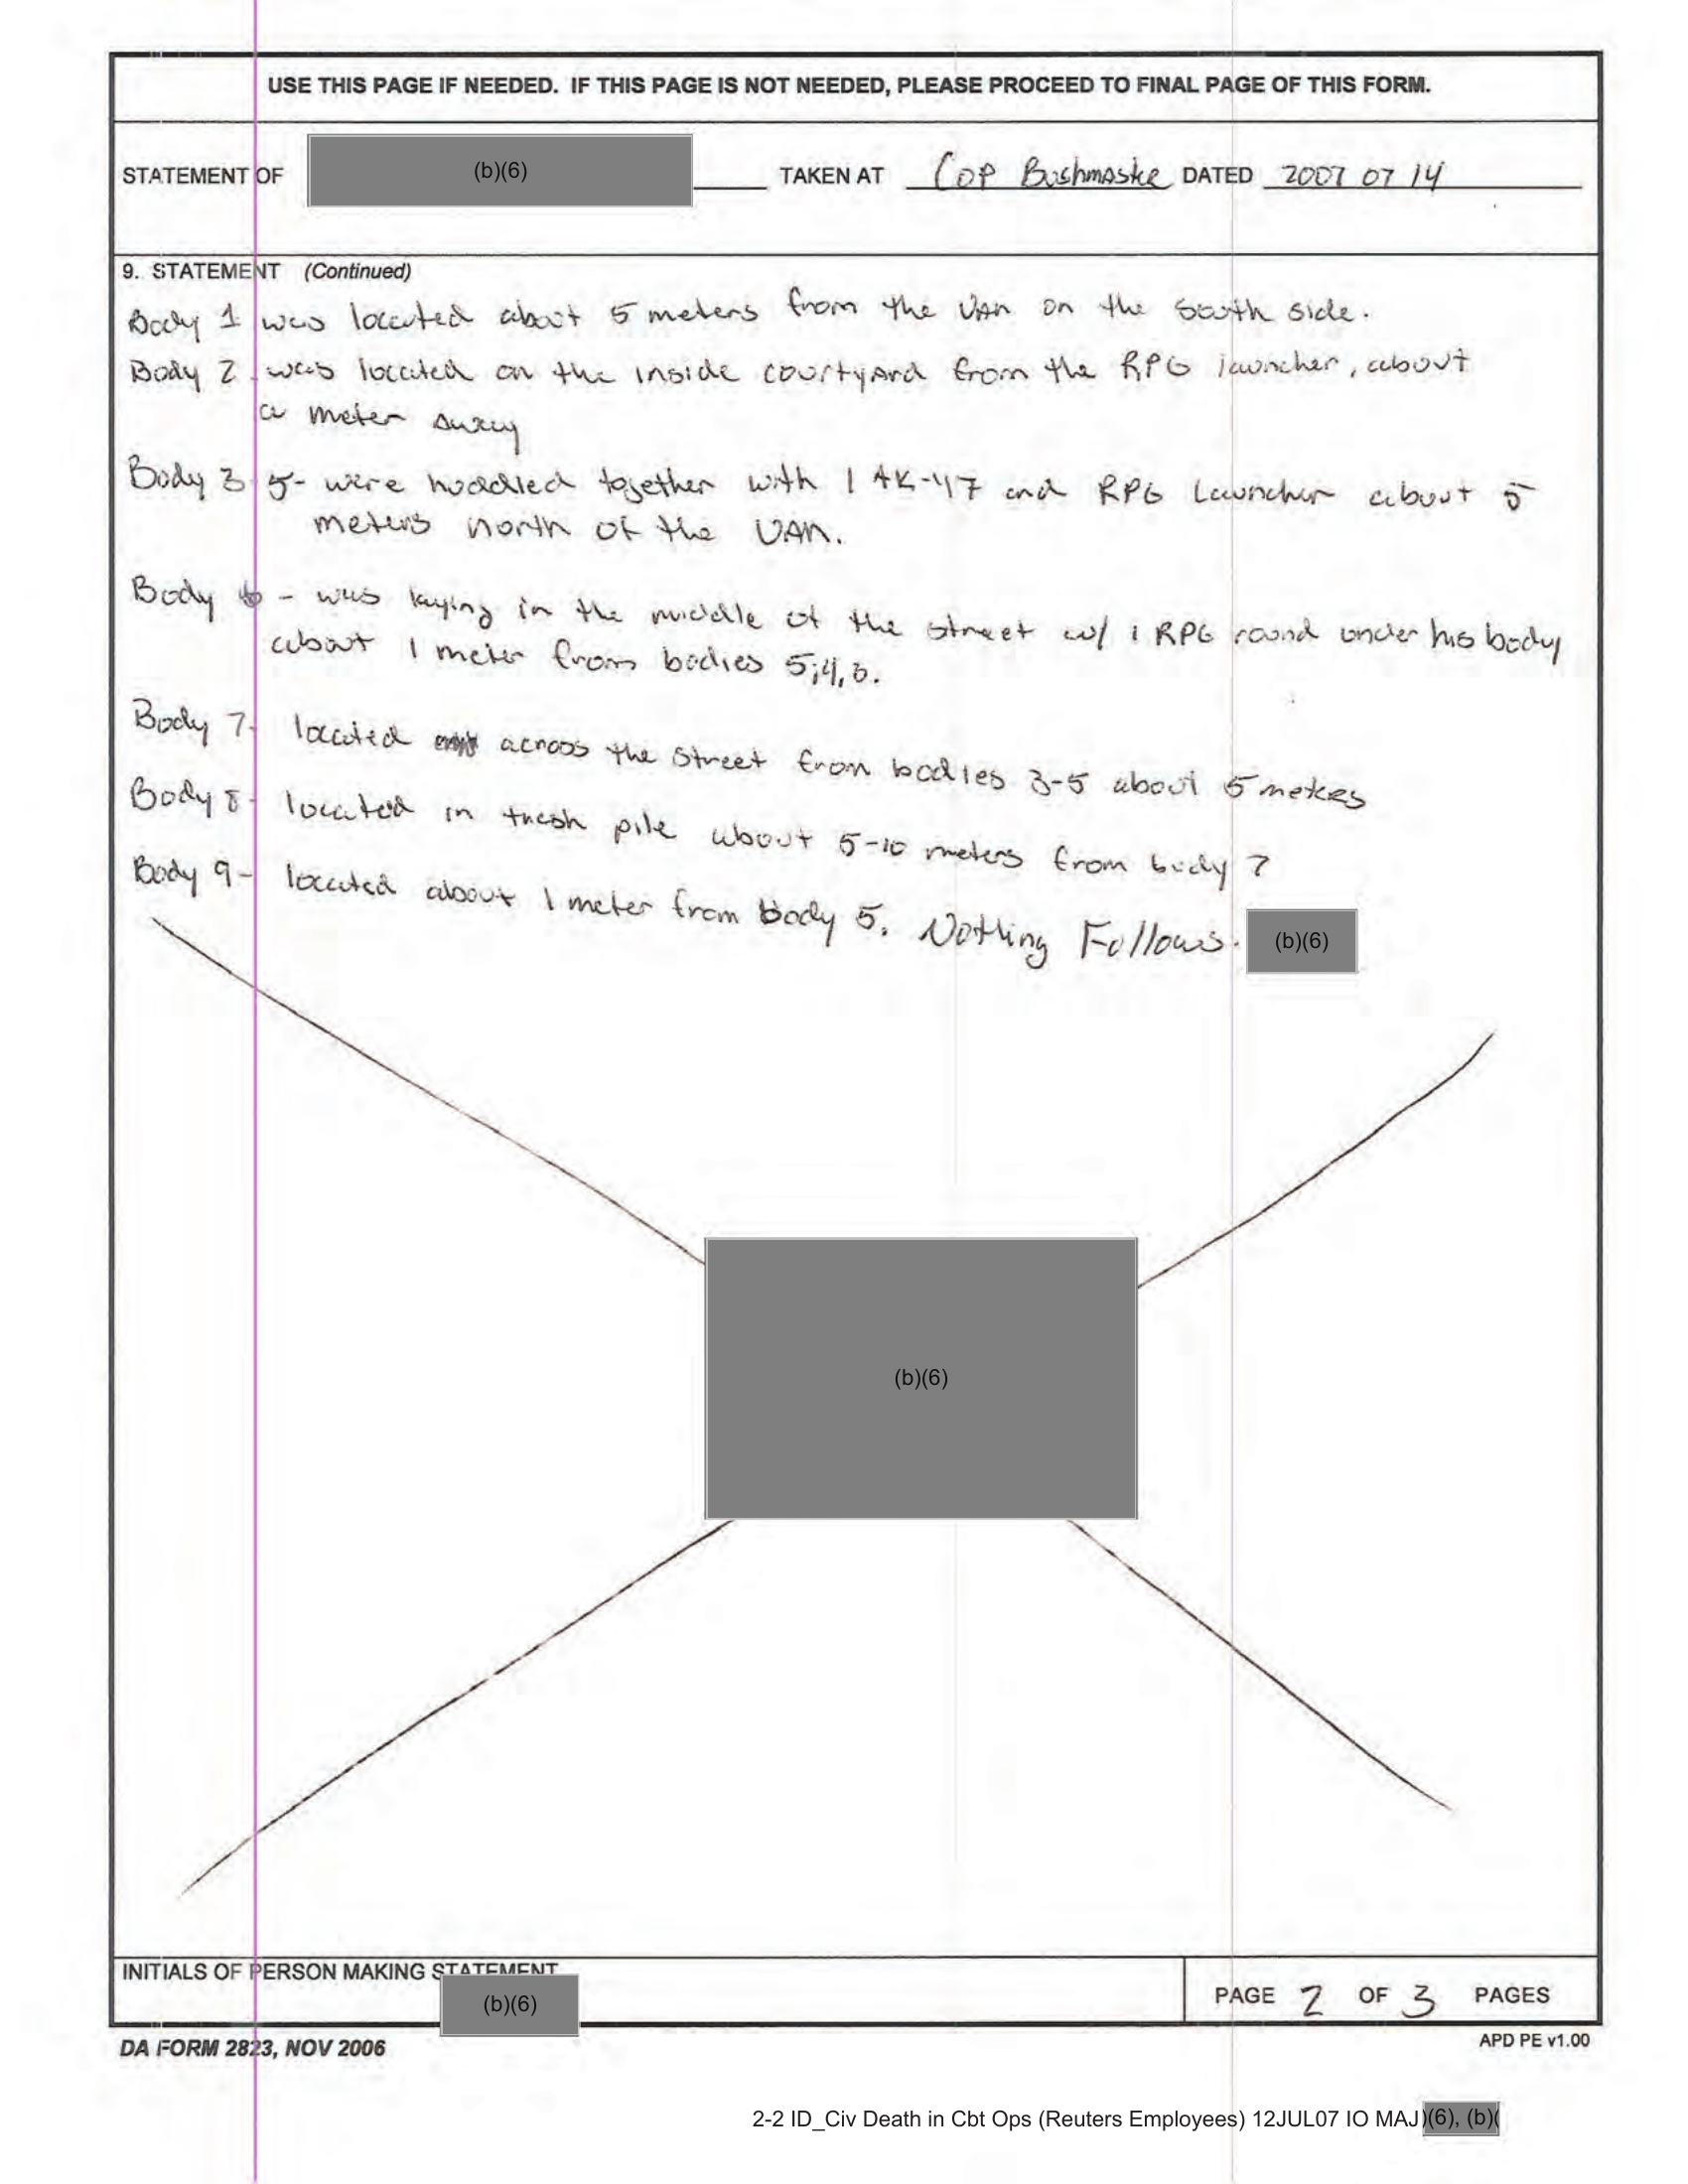 USE THIS PAGE IF NEEDED. IF THIS PAGE IS NOT NEEDED, PLEASE PROCEED TO FINAL PAGE OF THIS FORM.
STATEMENT OF (b)(6) TAKEN AT COP Bushmaste DATED 2007 07 14
9. STATEMENT (Continued)
Body 1 was located about 5 meters from the VAN on the South side.
Body 2 was located on the inside courtyard from the RPG launcher, about
a meter away
Body 3 5- were huddled together with 1 AK-47 and RPG Launcher about 5
meters north of the VAN.
Body 6 - was laying in the middle of the street w/ 1 RPG round under his body
about 1 meter from bodies 5,4,3.
Body 7- located across the street from bodies 3-5 about 5 meters
Body 8- located in trash pile about 5-10 meters from body 7
Body 9- located about 1 meter from Body 5. Nothing Follows. (b)(6)
(b)(6)
INITIALS OF PERSON MAKING STATEMENT
(b)(6)
PAGE 2 OF 3 PAGES
DA FORM 2823, NOV 2006
APD PE v1.00
2-2 ID_Civ Death in Cbt Ops (Reuters Employees) 12JUL07 IO MAJ)(6), (b)(